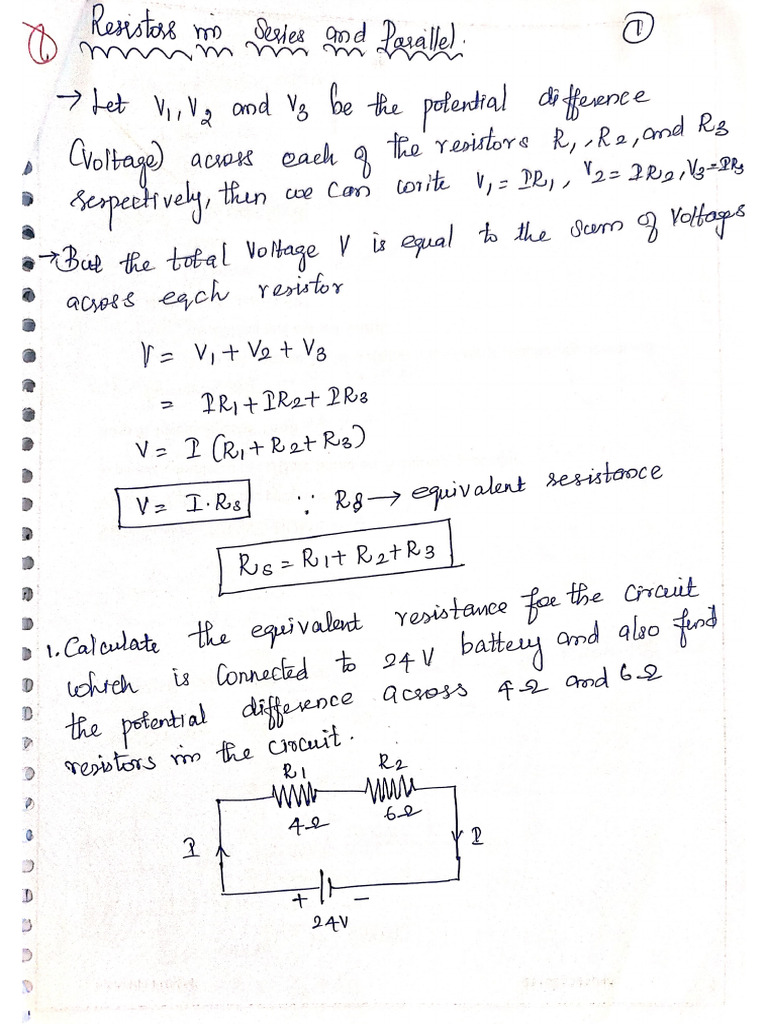 Resistors in Series and Parallel.
1
→ Let V₁, V₂ and V₃ be the potential difference
(Voltage) across each of the resistors R₁, R₂, and R₃
respectively, then we can write V₁ = IR₁, V₂ = IR₂, V₃ = IR₃
→ But the total Voltage V is equal to the sum of Voltages
across each resistor
V = V₁ + V₂ + V₃
= IR₁ + IR₂ + IR₃
V = I (R₁ + R₂ + R₃)
V = I · Rs ∵ Rs → equivalent resistance
Rs = R₁ + R₂ + R₃
1. Calculate the equivalent resistance for the circuit
which is Connected to 24V battery and also find
the potential difference across 4Ω and 6Ω
resistors in the circuit.
R₁ R₂
4Ω 6Ω
I I
+ −
24V